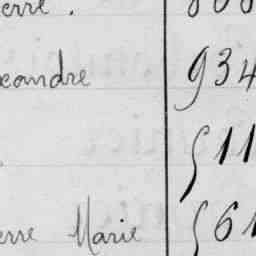 erre. 808
exandre 934
511
erre Marie 561